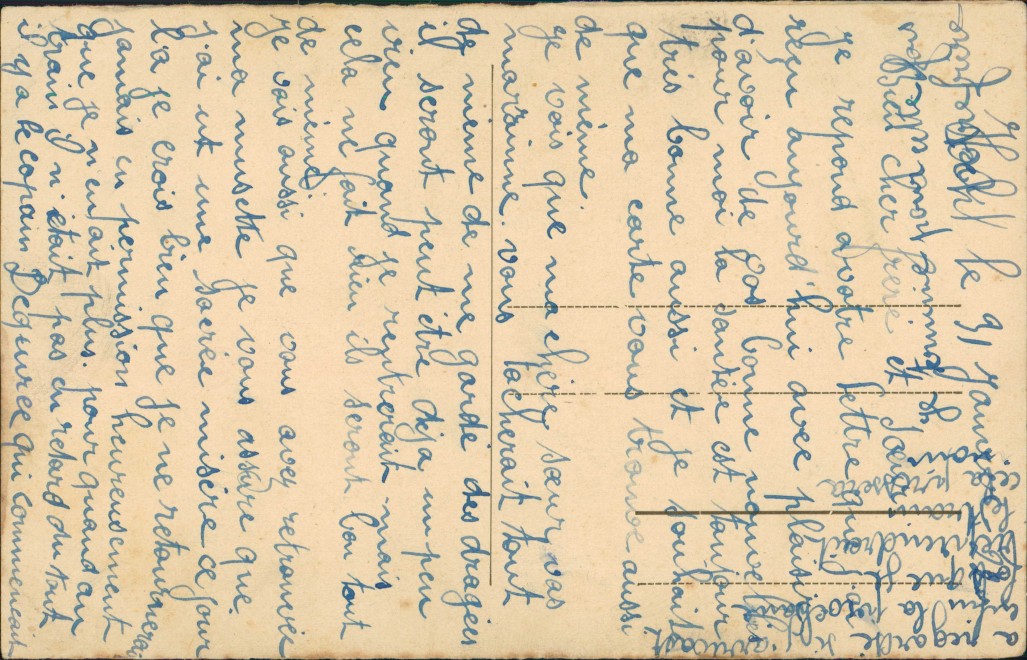 le 9 Janvier
Bien cher frère et Soeur
Je repond a votre lettre que j'ai
reçu aujourd'hui avec plaisir
d'avoir de vos bonne nouvelles
pour moi la santée est toujours
très bonne aussi et je souhaite
que ma carte vous trouve aussi
de même.
je vois que ma chère sœur vas
marainne. vous tacherait tout
de même de me garde des dragées
il seront peut être déja un peu
vieu quand je rentrerait mais
cela ne fait bien ils seront bon tout
de même
je vois aussi que vous avez retrouvée
ma musette je vous assure que
j'ai ut une sacrée misère ce jour
la je crois bien que je ne retournerai
jamais en permission heureusement
que je n'enfait plus. pour quand au
train il n'était pas en retard du tout
il y a le copain Dequirée qui commencait
a regarde si